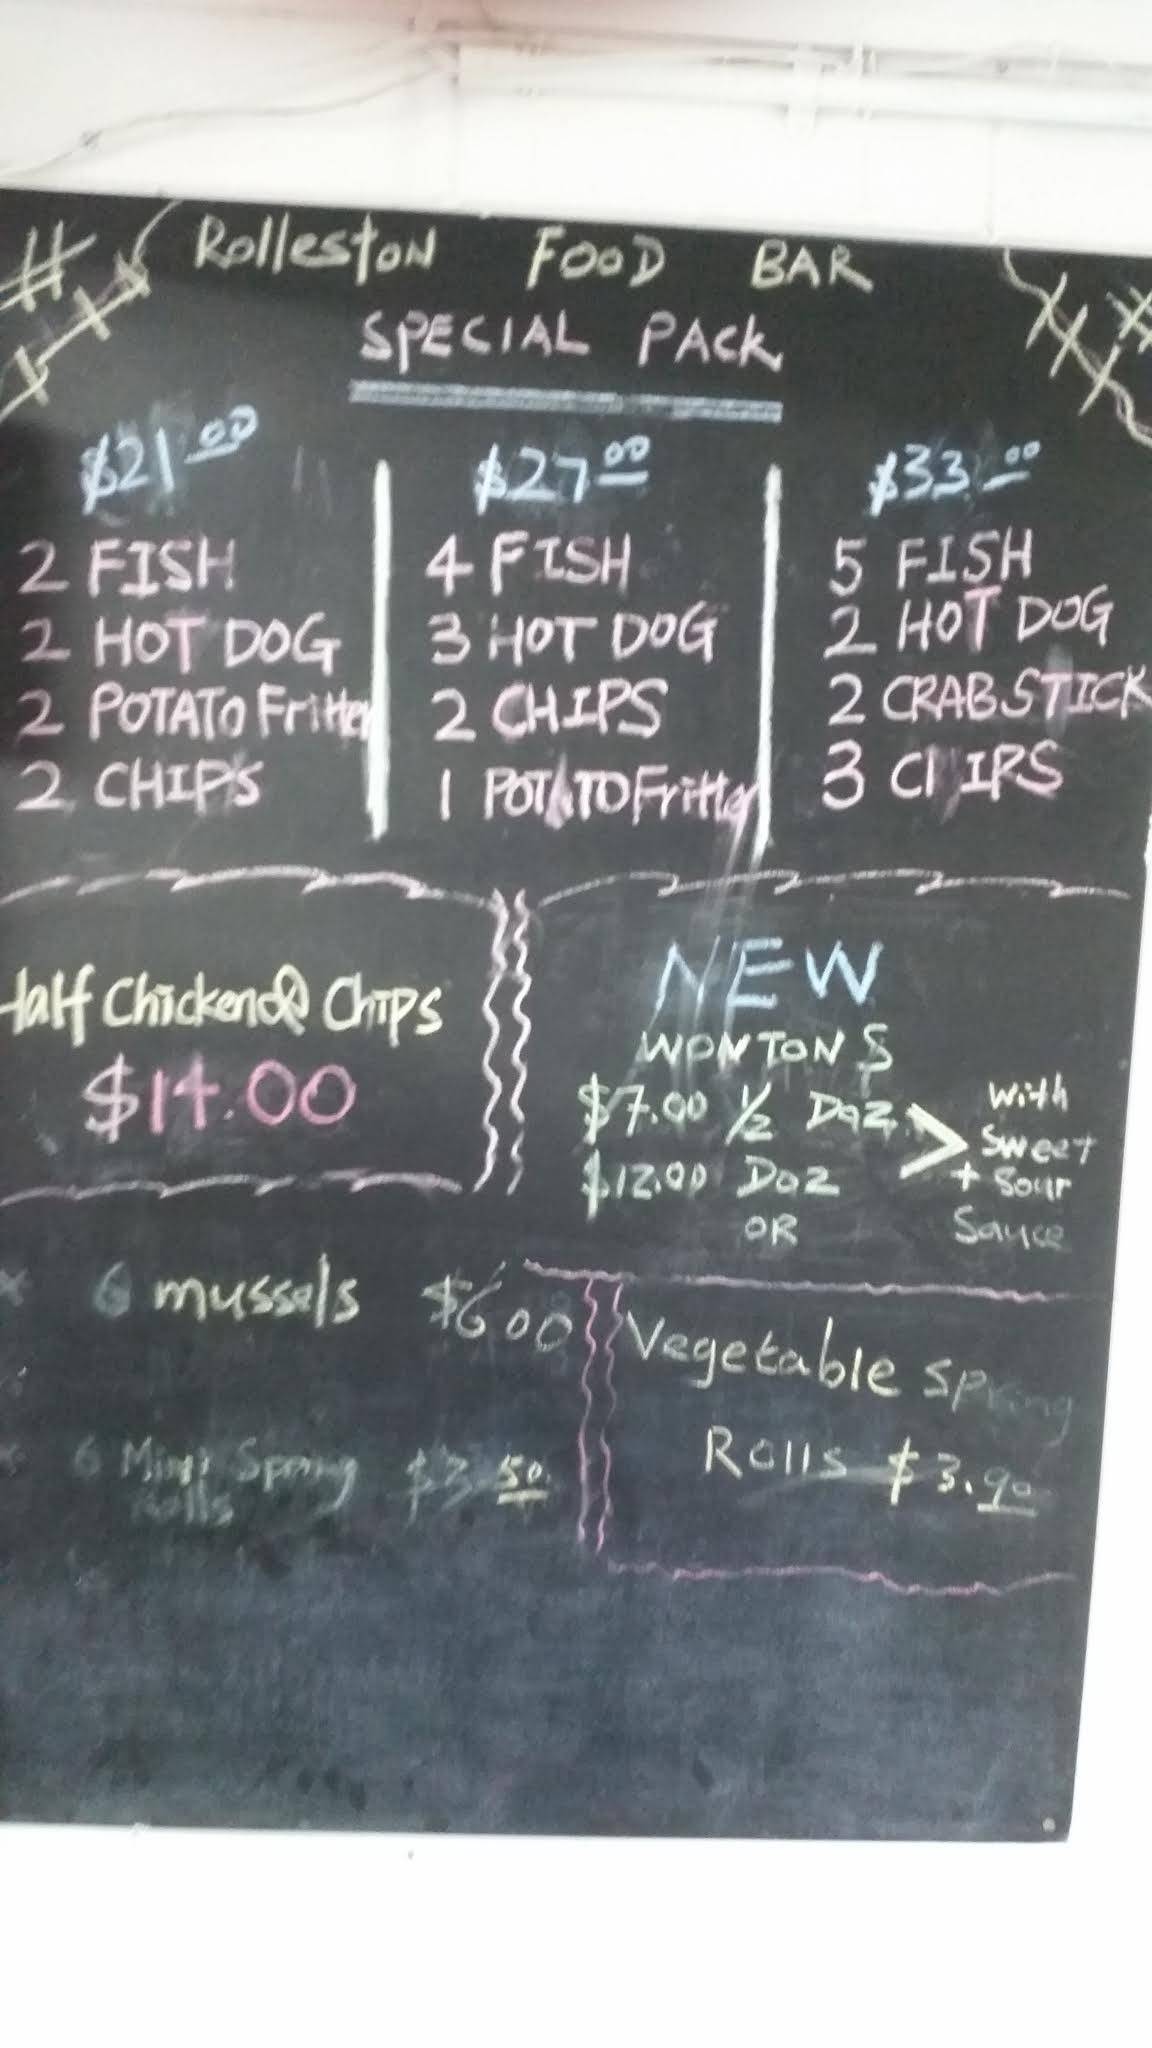 Rolleston FOOD BAR
SPECIAL PACK
$21.00
2 FISH
2 HOT DOG
2 POTATO Fritter
2 CHIPS
$27.00
4 FISH
3 HOT DOG
2 CHIPS
1 POTATO Fritter
$33.00
5 FISH
2 HOT DOG
2 CRABSTICK
3 CHIPS
Half Chicken & Chips
$14.00
NEW
WONTONS
$7.00 1/2 Doz
$12.00 Doz
OR
with
Sweet
+ Sour
Sauce
6 mussels $6.00
6 Mini Spring $3.50
Rolls
Vegetable Spring
Rolls $3.90